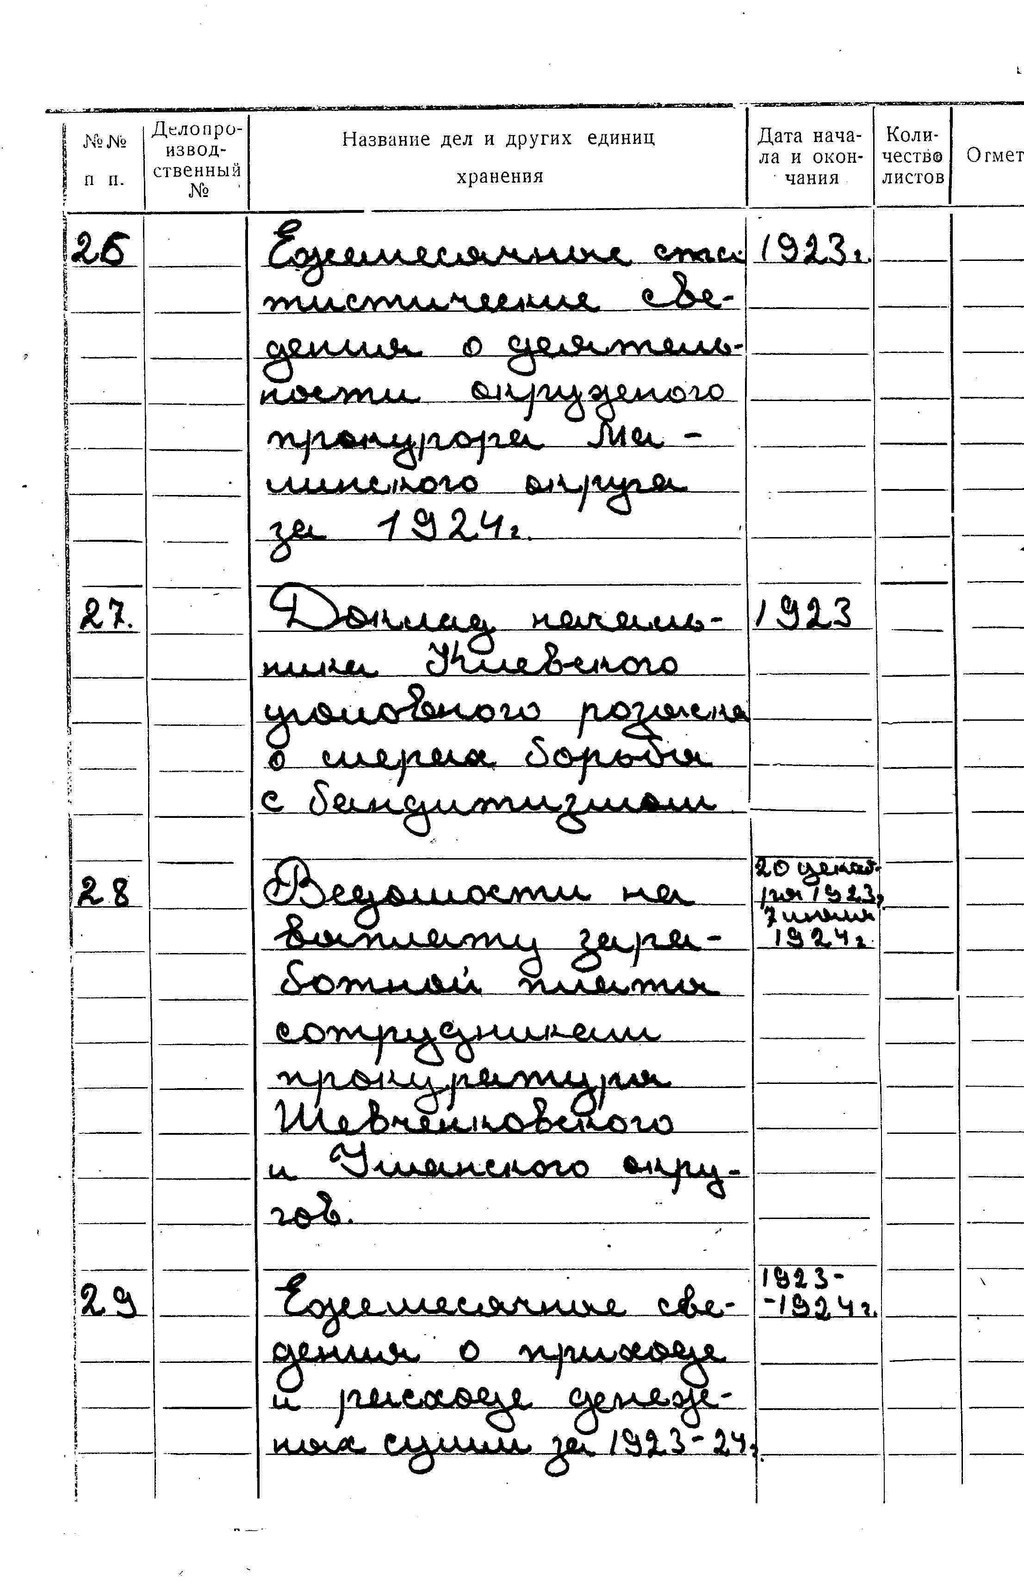 №№ п п.
Делопро-
извод-
ственный
№
Название дел и других единиц
хранения
Дата нача-
ла и окон-
чания
Коли-
чество
листов
Отмет
26 Ежемесячные ста- 1923 г.
тистические све-
дения о деятель-
ности окружного
прокурора Ма-
линского округа
за 1924 г.
27. Доклад началь- 1923
ника Киевского
уголовного розыска
о мерах борьбы
с бандитизмом
28 Ведомости на
выплату зара-
ботной платы
сотрудникам
прокуратуры
Шевченковского
и Уманского окру-
гов.
20 декаб-
ря 1923,
7 июля
1924 г.
29 Ежемесячные све-
дения о приходе
и расходе денеж-
ных сумм за 1923-24 г.
1923-
-1924 г.